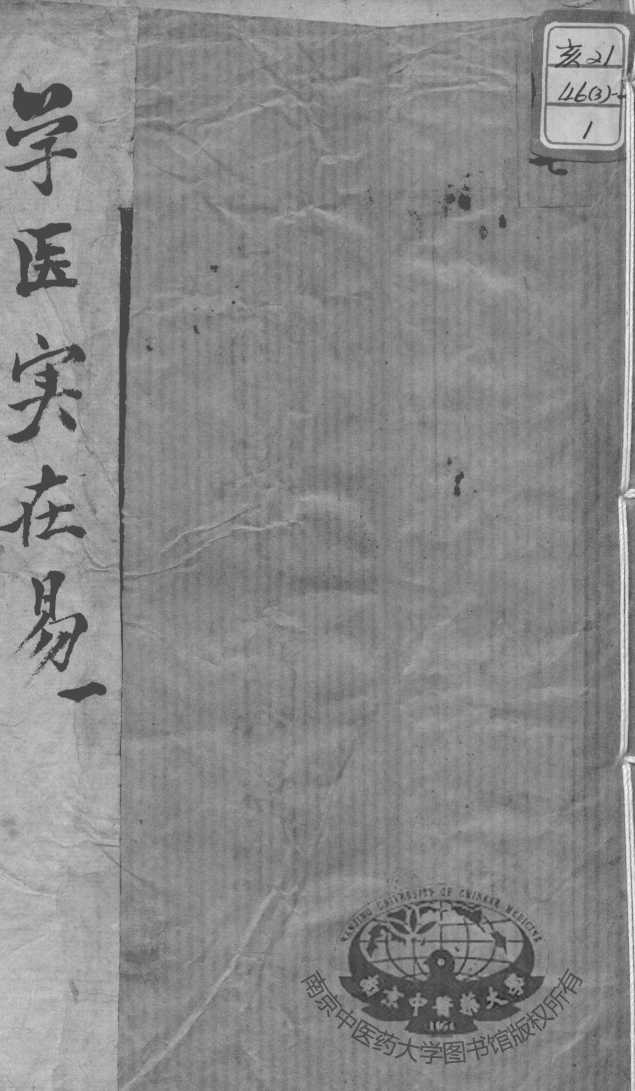 学医实在易
一
亥21
46(3)-2
1
七
NANJING UNIVERSITY OF CHINESE MEDICINE
南京中醫藥大學
1954
南京中医药大学图书馆版权所有